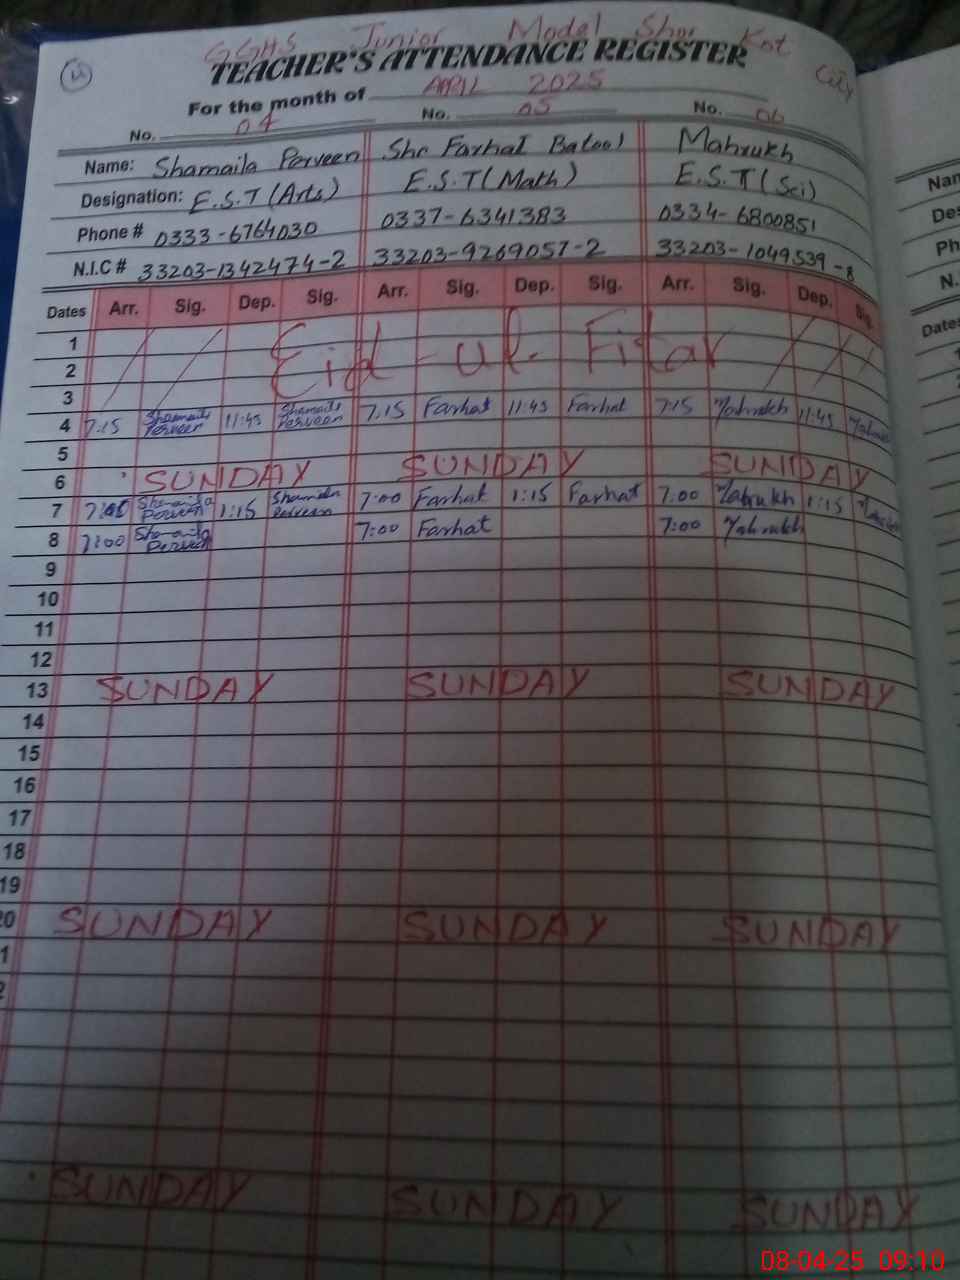 GGHS Junior Model Shor Kot City
TEACHER'S ATTENDANCE REGISTER
For the month of APRIL 2025
No. 04 No. 05 No. 06
Name: Shamaila Perveen Farhat Batool Mahrukh
Designation: E.S.T (Arts) E.S.T (Math) E.S.T (Sci)
Phone # 0333-6764030 0337-6341383 0334-6800851
N.I.C # 33203-1342474-2 33203-9269057-2 33203-1049539-8
Dates Arr. Sig. Dep. Sig. Arr. Sig. Dep. Sig. Arr. Sig. Dep. Sig.
1
2 Eid-ul-Fitar
3
4 7:15 Shamaila Perveen 11:45 Shamaila Perveen 7:15 Farhat 11:45 Farhat 7:15 Mahrukh 11:45
5
6 SUNDAY SUNDAY SUNDAY
7 7:00 Shamaila Perveen 1:15 Shamaila Perveen 7:00 Farhat 1:15 Farhat 7:00 Mahrukh 1:15
8 7:00 Shamaila Perveen 7:00 Farhat 7:00 Mahrukh
9
10
11
12
13 SUNDAY SUNDAY SUNDAY
14
15
16
17
18
19
20 SUNDAY SUNDAY SUNDAY
SUNDAY SUNDAY SUNDAY
08-04-25 09:10